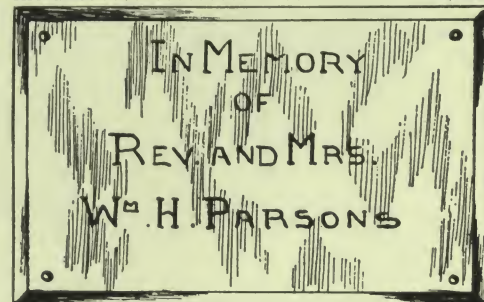 IN MEMORY
OF
REV. AND MRS.
Wᴹ. H. PARSONS